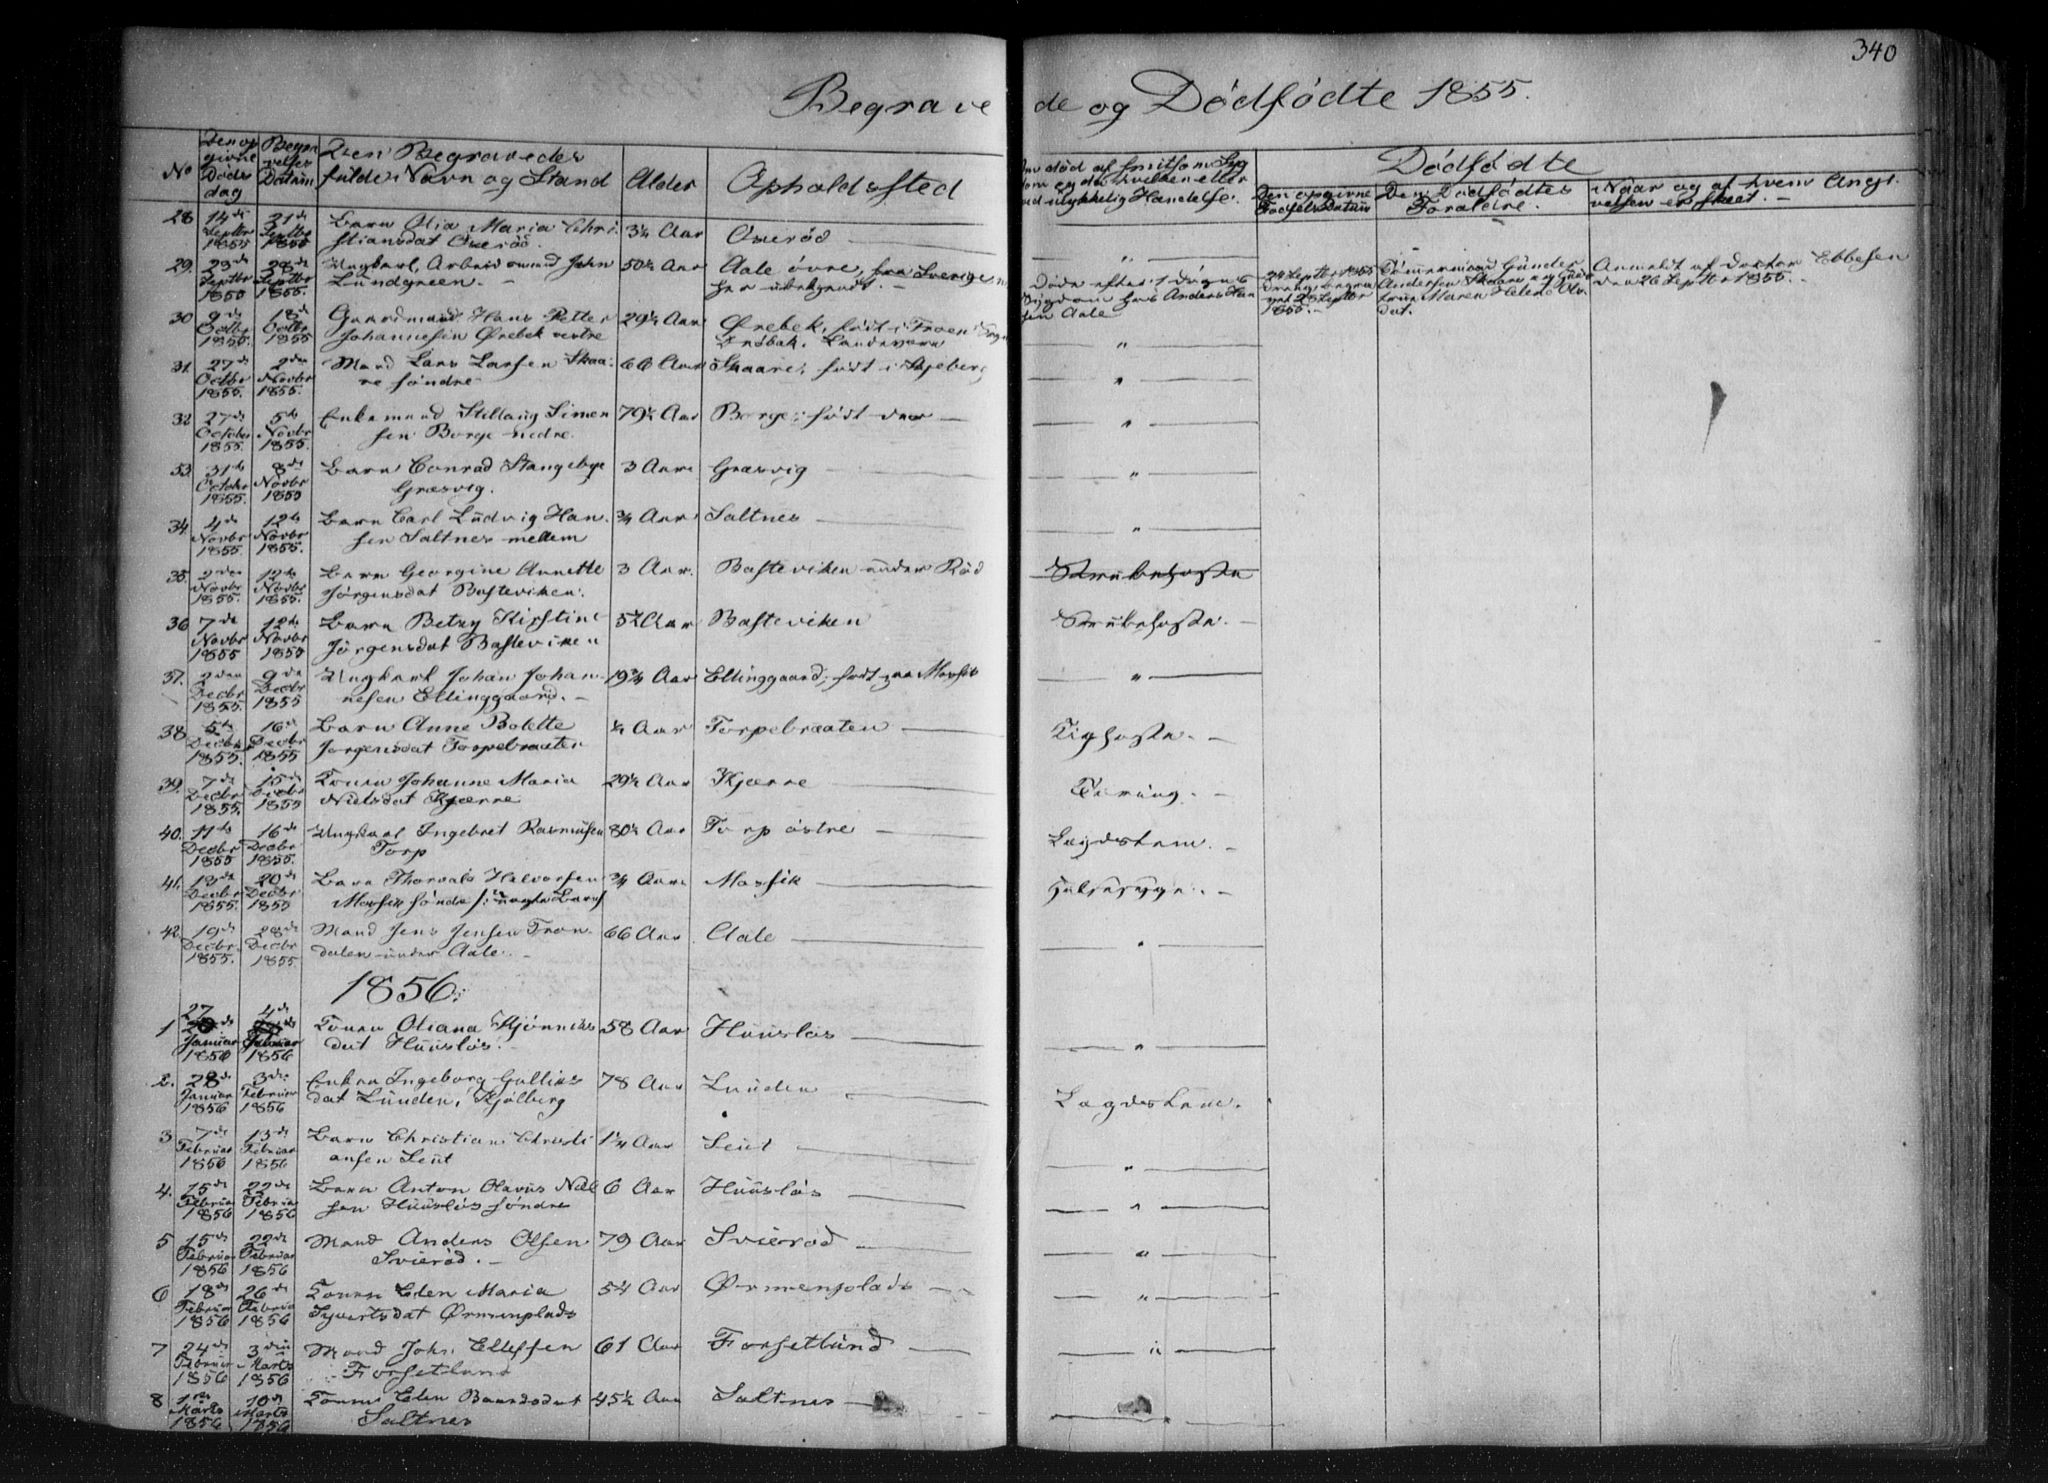 340
Begravede og Dødfødte 1855.
No
Den opgivne Dødsdag
Begravelses Datum
Den Begravedes fulde Navn og Stand
Alder
Opholdssted
Dødfødte
Den opgivne Fødsels Datum
Den Dødfødtes Forældre.
Naar og af hvem Angivelsen er skeet. -
28 14de Septbr 1855 21de Septbr 1855 Barn Olia Maria Christiansdat Oxerød. 3¼ Aar Oxerød
29. 23de Septbr 1855 28de Septbr 1855. Ungkarl, Arbeidsmand John Lundgreen. - 50½ Aar Aale øvre, fra Sverige
Anmeldt af Doctor Ebbesen
den 26 Septbr 1855.
30 9de Octbr 1855. 18de Octbr 1855 Gaardmand Hans Petter Johannesen Ørebek vestre 29½ Aar Ørebek, født i Froen Drøbak.
31. 27de Octbr 1855. 2den Novbr 1855. Mand Lars Larsen Skaare søndre 66 Aar Skaare; født i Skjeberg
32 27de October 1855. 5te Novbr 1855. Enkemand Stillaug Simensen Borge nedre. 79½ Aar Borge; født der
33 31te October 1855. 8de Novbr 1855 Barn Conrad Stangebye Græsvig. 3 Aar Græsvig
34. 4de Novbr 1855 12te Novbr 1855. Barn Carl Ludvig Hansen Saltnes mellem ¾ Aar Saltnes
35. 2den Novbr 1855 12te Novbr 1855. Barn Georgine Annette Jørgensdat Basteviken. 3 Aar. Basteviken under Rød Strubehoste
36 7de Novbr 1855 12te Novbr 1855 Barn Betzy Kirstine Jørgensdat Basteviken 5¾ Aar Basteviken Strubehoste. -
37. 2den Decbr 1855. 9de Decbr 1855 Ungkarl Johan Johannesen Ellinggaard. - 19¾ Aar Ellinggaard; født paa Mossik
38 5te Decbr 1855. 16de Decbr 1855 Barn Anne Bolette Jørgensdat Torpebraaten ¼ Aar Torpebraaten Kighoste. -
39. 7de Decbr 1855. 15de Decbr 1855 Konen Johanne Maria Nielsdat Kjærre 29½ Aar Kjærre Tæring. -
40. 11te Decbr 1855 16de Decbr 1855. Ungkarl Ingebret Rasmusen Torp 80½ Aar Torp østre Lægdslem. -
41. 13de Decbr 1855. 20de Decbr 1855 Barn Thorvald Halvorsen Mossik søndre /: uægte Barn :/ ¾ Aar Mossik Halssyge. -
42. 19de Decbr. 1855. 28de Decbr 1855 Mand Jens Jensen Trondalen under Aale. - 66 Aar Aale
1856:
1 27de Januar 1856 4de Februar 1856 Konen Oliana Kjønniksdat Huusløs. - 58 Aar Huusløs
2. 28de Januar 1856 3die Februar 1856 Enken Ingeborg Gulliksdat Lunden, Kjølberg 78 Aar Lunden Lægdslem.
3 7de Februar 1856 13de Februar 1856 Barn Christian Christiansen Leut 1¼ Aar Leut
4. 15de Februar 1856 22de Februar 1856 Barn Anton Olavus Nielsen Huusløs søndre 6 Aar Huusløs
5 15de Februar 1856 22de Februar 1856 Mand Anders Olsen Svierød. - 79 Aar Svierød
6 18de Februar 1856 26de Februar 1856 Konen Elen Maria Syvertsdat Ørmenplads 54 Aar Ørmenplads
7 24de Februar 1856 3die Marts 1856 Mand Joh. Ellefsen Forsetlund 61 Aar Forsetlund
8 1ste Marts 1856 10de Marts 1856 Konen Elen Baardsdat Saltnes 45½ Aar Saltnes